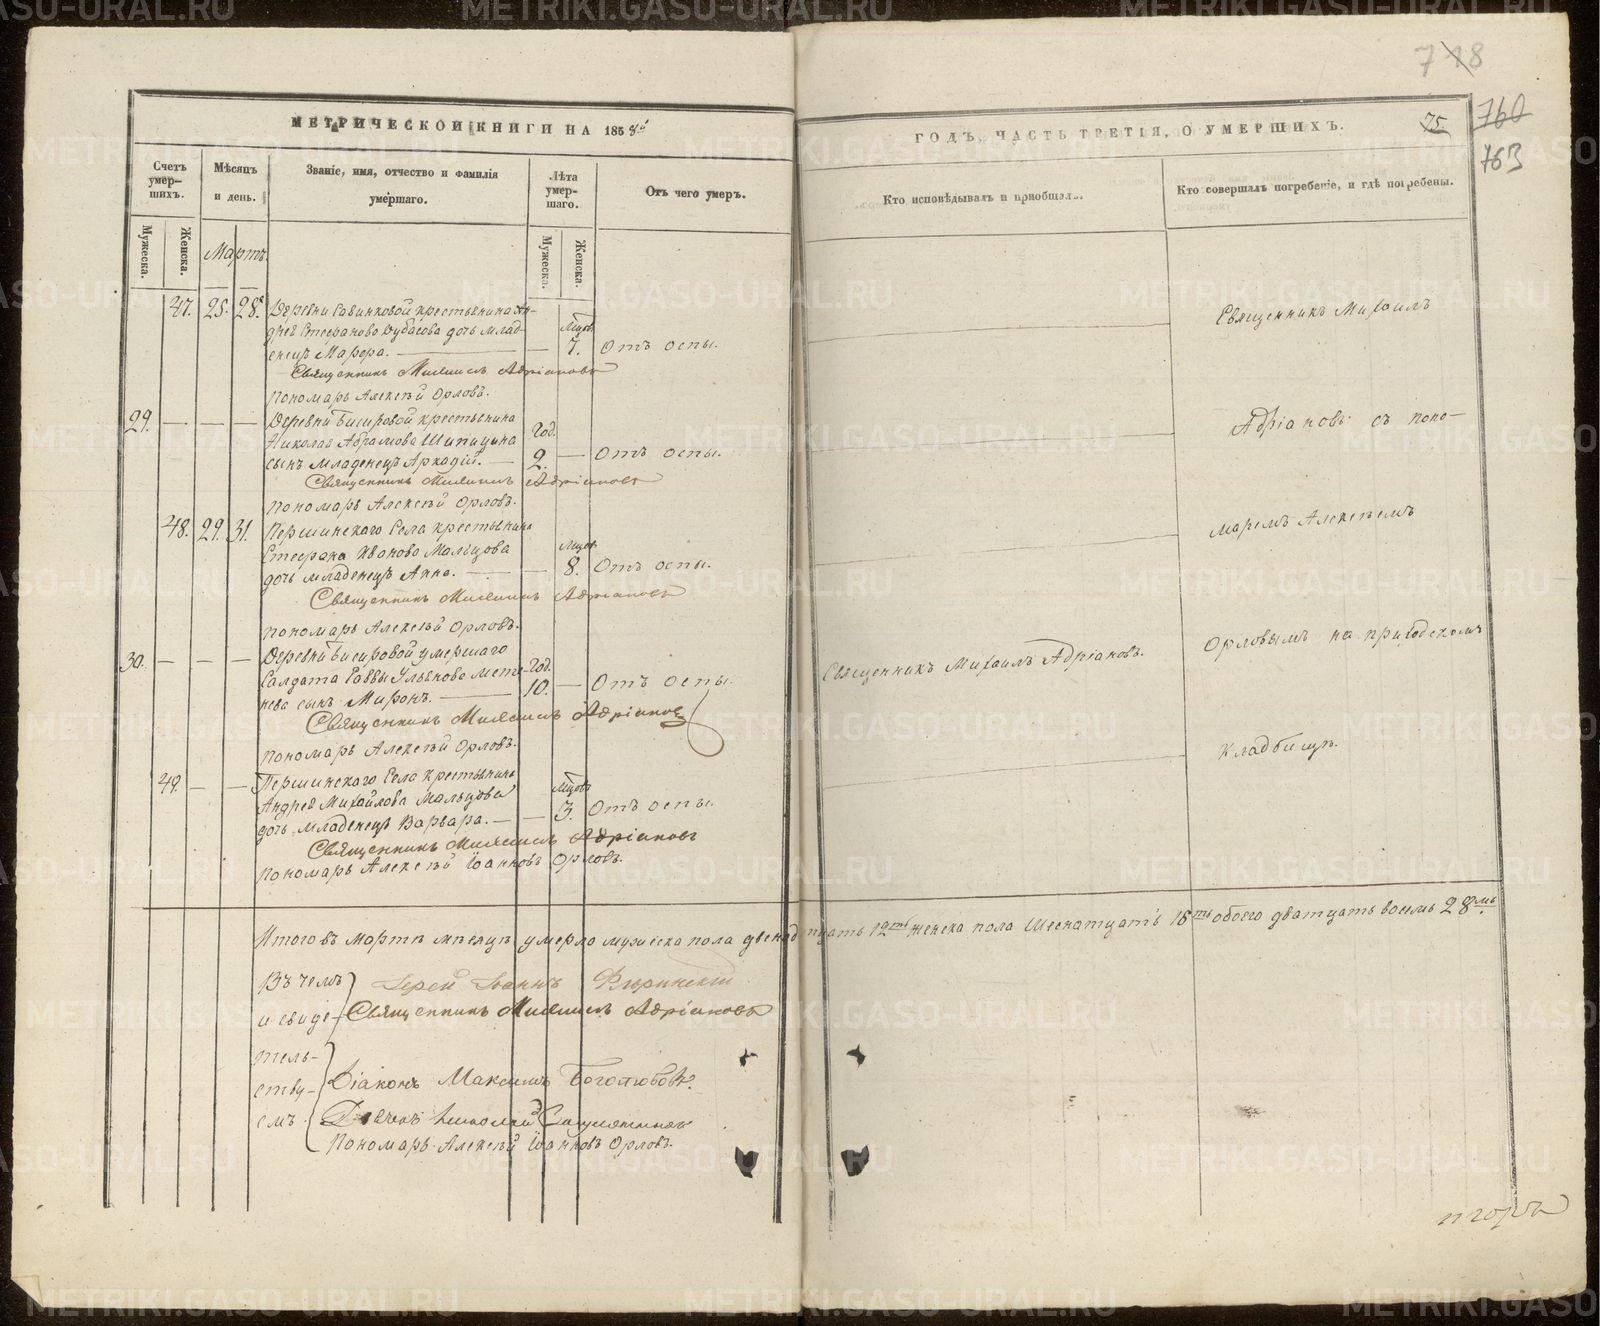 718
МЕТРИЧЕСКОЙ КНИГИ НА 1858й
ГОДЪ, ЧАСТЬ ТРЕТІЯ, О УМЕРШИХЪ.
75
760
763
Счетъ умер-
шихъ.
Мѣсяцъ
и день.
Званіе, имя, отчество и фамилія
умершаго.
Лѣта
умер-
шаго.
Отъ чего умеръ.
Кто исповѣдывалъ и пріобщалъ.
Кто совершалъ погребеніе, и гдѣ погребены.
Мужеска.
Женска.
Мартъ.
Мужеска.
Женска.
47. 25. 28. Деревни Савинковой крестьянина Ан-
дрея Стефанова Дубасова дочь млад- Мцовъ
енецъ Марѳа. — 7. Отъ оспы.
Священникъ Михаилъ Адріановъ
Пономарь Алексѣй Орловъ.
29. — — — Деревни крестьянина
Николая Абрамова Шипицына Год.
сынъ младенецъ Аркадій. — 2. — Отъ оспы.
Священникъ Михаилъ Адріановъ
Пономарь Алексѣй Орловъ.
48. 29. 31. Першинскаго Села крестьянина
Стефана Иванова Мальцова Мцовъ
дочь младенецъ Анна. — 8. Отъ оспы.
Священникъ Михаилъ Адріановъ
Пономарь Алексѣй Орловъ.
30. — — — Деревни умершаго
Салдата Саввы Ульянова Год.
сынъ Миронъ. — 10. — Отъ оспы.
Священникъ Михаилъ Адріановъ
Пономарь Алексѣй Орловъ.
49. — — Першинскаго Села крестьянина
Андрея Михайлова Мальцова Мцовъ
дочь младенецъ Варвара. — 3. Отъ оспы.
Священникъ Михаилъ Адріановъ
Пономарь Алексѣй Іоанновъ Орловъ.
Священникъ Михаилъ Адріановъ.
Священникъ Михаилъ
Адріановъ съ поно-
маремъ Алексѣемъ
Орловымъ на приходскомъ
кладбищѣ.
Итого въ мартѣ мѣсяцѣ умерло мужеска пола двенадцать 12ть женска пола Шеснатцать 16ть обоего дватцать восемь 28мь.
Въ чемъ Іерей Іоаннъ
и свиде- Священникъ Михаилъ Адріановъ
тель-
ству- Діаконъ Максимъ Боголюбовъ.
емъ. Дьячекъ Николай
Пономарь Алексѣй Іоанновъ Орловъ.